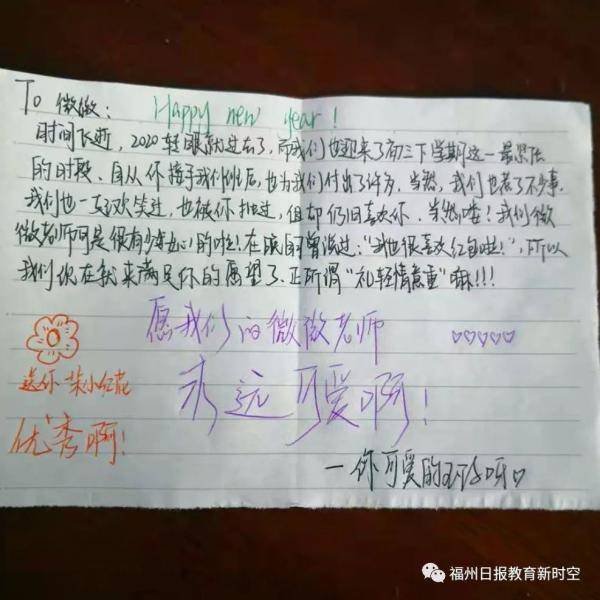 To 微微:
Happy new year!
时间飞逝，2020转眼就过去了，而我们也迎来了初三下学期这一最紧张
的时段。自从你接手我们班后，也为我们付出了许多，当然，我们也惹了不少事。
我们也一起欢笑过，也被你批过，但却仍旧喜欢你。当然啦！我们微
微老师可是很有少女心的哟！在晚自习曾说过："我也很喜欢红包啦！"，所以
我们现在就来满足你的愿望了。正所谓"礼轻情意重"嘛!!!
愿我们的微微老师 ♡♡♡♡♡
永远可爱啊！
送你一朵小红花
优秀啊！
—你可爱的孩子呀♡
福州日报教育新时空